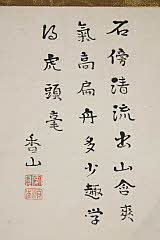 石傍清流出山含爽
氣高扁舟多少趣学
得虎頭毫
香山